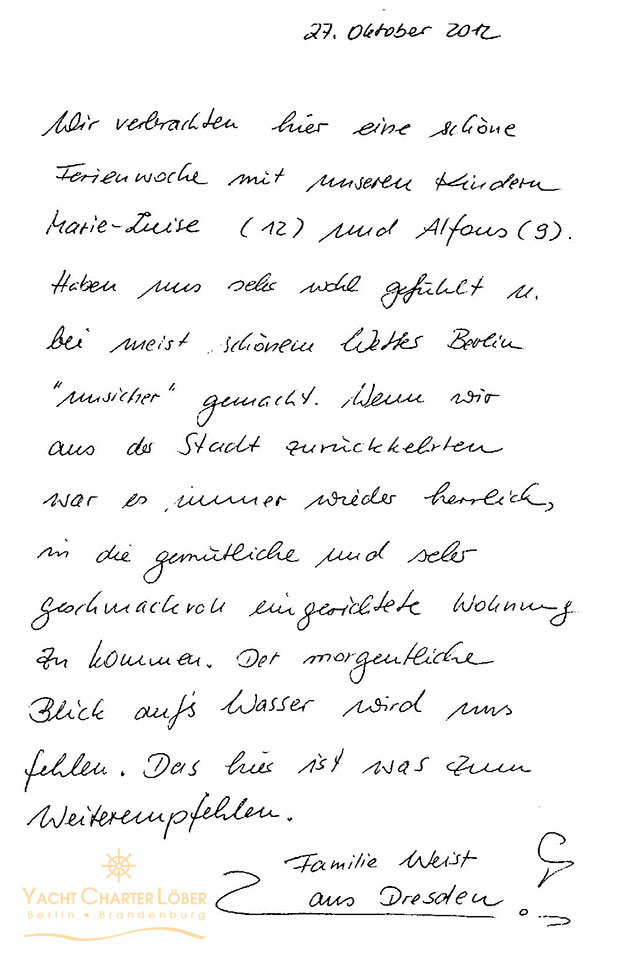 27. Oktober 2012
Wir verbrachten hier eine schöne
Ferienwoche mit unseren Kindern
Marie-Luise (12) und Alfons (9).
Haben uns sehr wohl gefühlt u.
bei meist schönem Wetter Berlin
"unsicher" gemacht. Wenn wir
aus der Stadt zurückkehrten
war es immer wieder herrlich,
in die gemütliche und sehr
geschmackvoll eingerichtete Wohnung
zu kommen. Der morgentliche
Blick auf's Wasser wird uns
fehlen. Das hier ist was zum
Weiterempfehlen.
Familie Weist
aus Dresden
YACHT CHARTER LÖBER
Berlin • Brandenburg